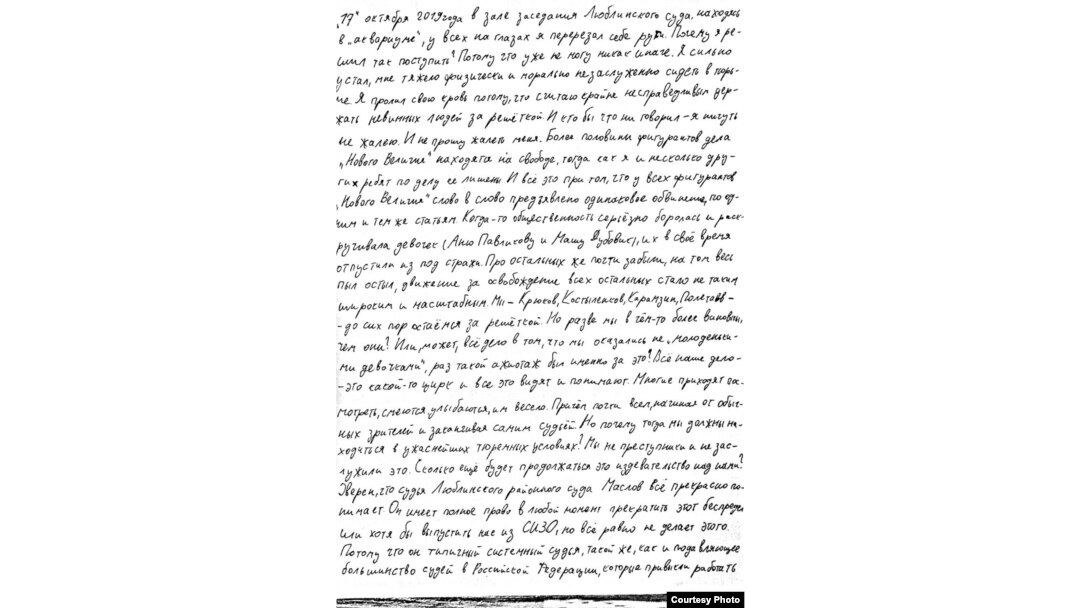 „17" октября 2019 года в зале заседания Люблинского суда, находясь
в „аквариуме", у всех на глазах я перерезал себе руки. Почему я ре-
шил так поступить? Потому что уже не могу никак иначе. Я сильно
устал, мне тяжело физически и морально незаслуженно сидеть в тюрь-
ме. Я пролил свою кровь потому, что считаю крайне несправедливым дер-
жать невинных людей за решёткой. И кто бы что ни говорил – я ничуть
не жалею. И не прошу жалеть меня. Более половины фигурантов дела
„Нового Величия" находятся на свободе, тогда как я и несколько дру-
гих ребят по делу её лишены. И всё это при том, что у всех фигурантов
„Нового Величия" слово в слово предъявлено одинаковое обвинение, по од-
ним и тем же статьям. Когда-то общественность серьёзно боролась и раск-
ручивала девочек (Аню Павликову и Машу Дубовик), их в своё время
отпустили из под стражи. Про остальных же почти забыли, на том весь
пыл остыл, движение за освобождение всех остальных стало не таким
широким и масштабным. Мы – Крюков, Костыленков, Карамзин, Полетаев –
– до сих пор остаёмся за решёткой. Но разве мы в чём-то более виновны,
чем они? Или, может, всё дело в том, что мы оказались не „молоденьки-
ми девочками", раз такой ажиотаж был именно за это? Всё наше дело –
– это какой-то цирк и все это видят и понимают. Многие приходят пос-
мотреть, смеются, улыбаются, им весело. Причём почти всем, начиная от обыч-
ных зрителей и заканчивая самим судьёй. Но почему тогда мы должны на-
ходиться в ужаснейших тюремных условиях? Мы не преступники и не зас-
лужили это. Сколько ещё будет продолжаться это издевательство над нами?
Уверен, что судья Люблинского районного суда Маслов всё прекрасно по-
нимает. Он имеет полное право в любой момент прекратить этот беспредел
или хотя бы выпустить нас из СИЗО, но всё равно не делает этого.
Потому что он типичный системный судья, такой же, как и подавляющее
большинство судей в Российской Федерации, которые привыкли работать
Courtesy Photo